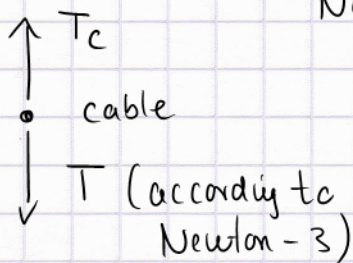 N
Tc
cable
T (according to
Newton-3)